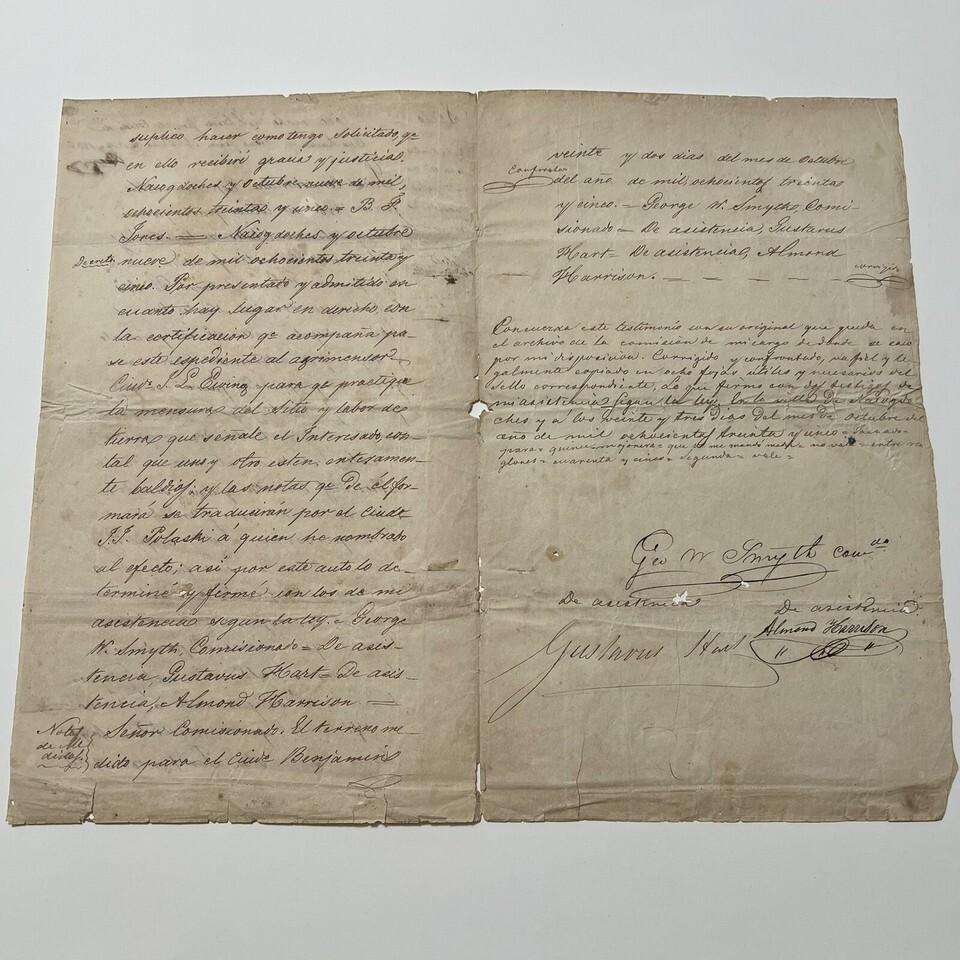 suplico hacer como tengo solicitado, qe
en ello recibiré gracia y justicia.
Nacogdoches y Octubre nueve de mil,
ochocientos treinta y cinco = B. F.
Jones. = Nacogdoches y octubre
Decreto
nueve de mil ochocientos treinta y
cinco. Por presentado y admitido en
cuanto hay lugar en derecho, con
la certificacion qe acompaña pa-
se este espediente al agrimensor
Ciudo para qe practique
la mensura del Sitio y labor de
tierra que señale el Interesado, con
tal que uno y otro esten enteramen-
te baldios; y las notas qe de el for-
mará se traducirán por el Ciudo
J. J. Polaski á quien he nombrado
al efecto; así por este auto lo de-
terminé y firmé con los de mi
asistencia segun la ley. = George
W. Smyth, Comisionado = De asis-
tencia, Gustavus Hart = De asis-
tencia, Almond Harrison =
Notas
de Me
didas.
Señor Comisionado. El terreno me
dido para el Ciudo Benjamin
veinte y dos dias del mes de Octubre
del año de mil, ochocientos treinta
y cinco. = George W. Smyth, Comi-
sionado = De asistencia, Gustavus
Hart = De asistencia, Almond
Harrison. — — — —
corregido
Concuerda este testimonio con su original que queda en
el archivo de la comision de mi cargo de donde se sacó
por mi disposicion. Corregido y confrontado, va fiel y le
galmente copiado en ocho fojas utiles y necesarias del
sello correspondiente, Lo que firmo con dos testigos de
mi asistencia segun la ley, En la villa De Nacogdo
ches y á los Veinte y tres dias del mes De Octubre del
año de mil ochocientos treinta y cinco =
para = = que = no vale = entre re
glones = cuarenta y cinco = segunda = vale =
Geo W Smyth Comdo
De asistencia
De asistencia
Gustavus Hart
Almond Harrison